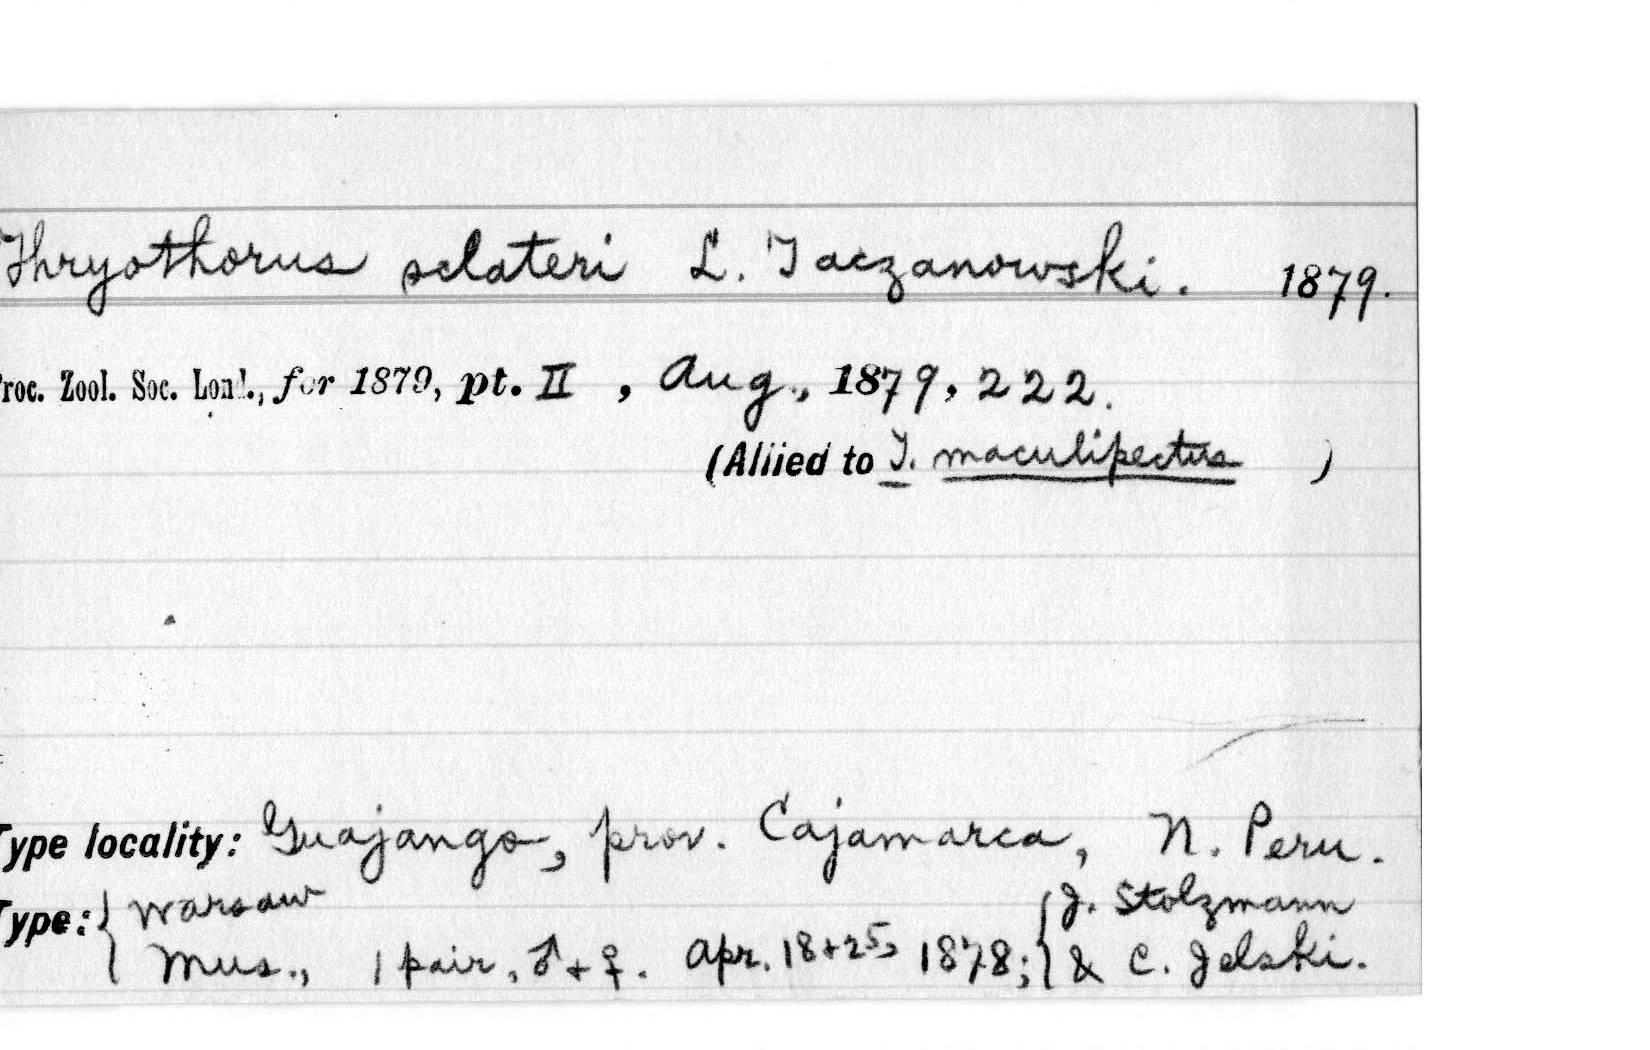 Thryothorus sclateri L. Taczanowski. 1879.
Proc. Zool. Soc. Lond., for 1879, pt. II , Aug., 1879, 222.
(Allied to T. maculipectus )
Type locality: Guajango, prov. Cajamarca, N. Peru.
Type: { Warsaw { J. Stolzmann
Mus., 1 pair, ♂ + ♀. Apr. 18 + 25, 1878; } & C. Jelski.